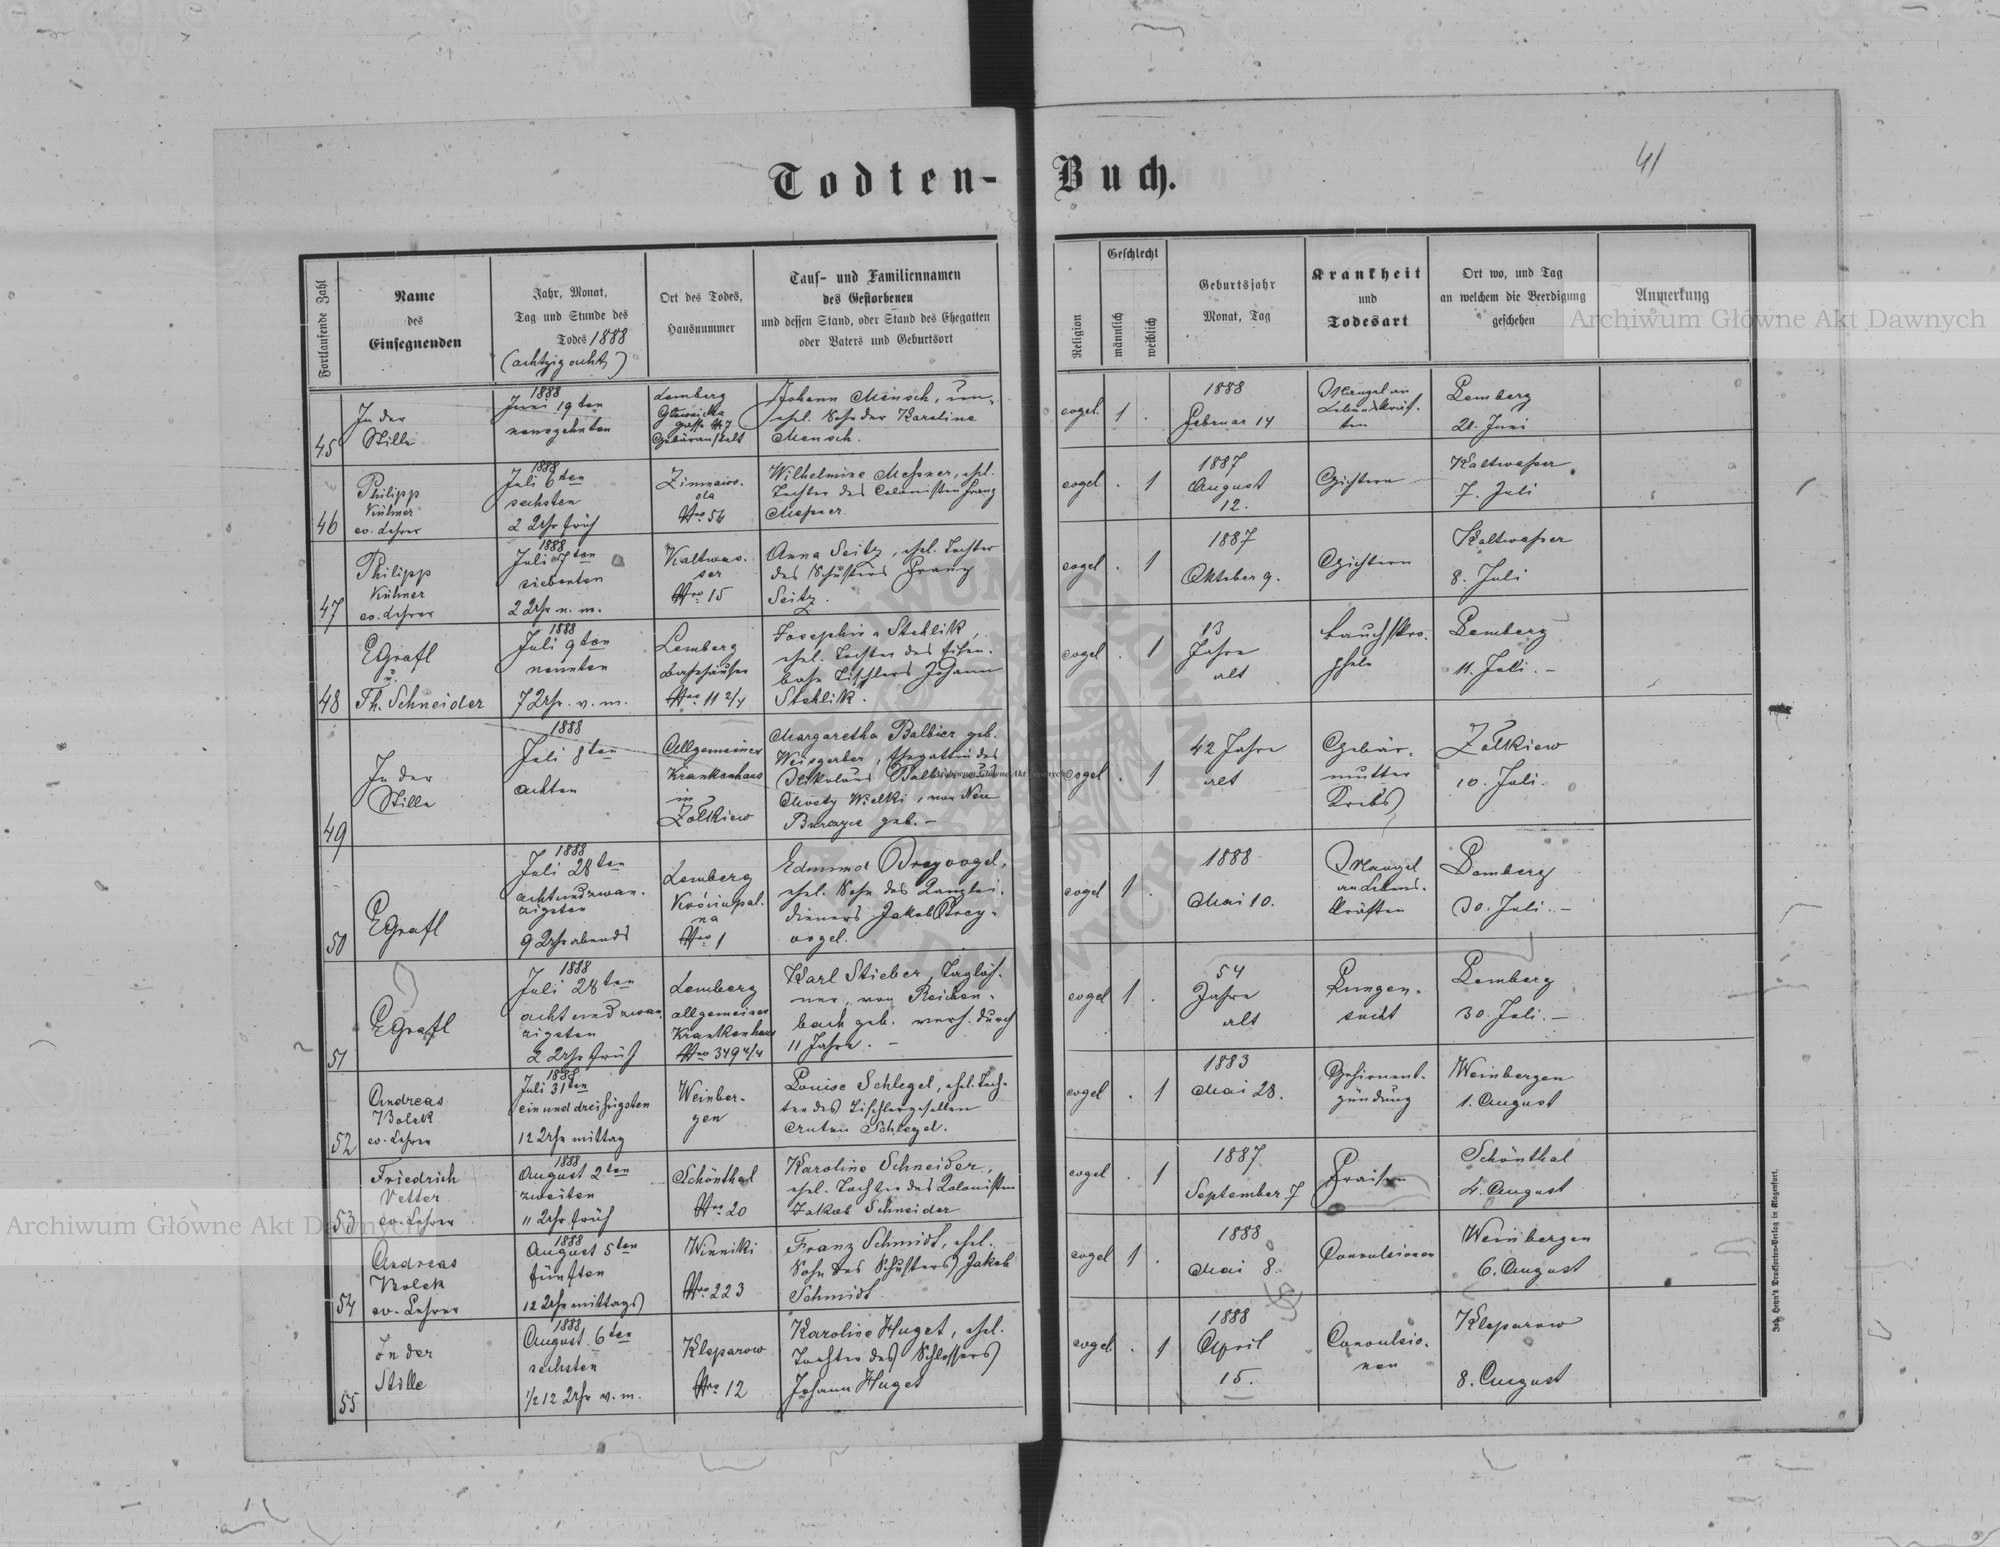 Todten- Buch.
41
Fortlaufende Zahl
Name
des
Einsegnenden
Jahr, Monat,
Tag und Stunde des
Todes 1888
(achtzig acht)
Ort des Todes,
Hausnummer
Tauf- und Familiennamen
des Gestorbenen
und dessen Stand, oder Stand des Ehegatten
oder Vaters und Geburtsort
Religion
Geschlecht
männlich
weiblich
Geburtsjahr
Monat, Tag
Krankheit
und
Todesart
Ort wo, und Tag
an welchem die Beerdigung
geschehen
Anmerkung
45
In der
Stille
1888
Juni 19ten
neunzehnten
Lemberg
gasse Nro 7
Gebäranstalt
Johann Mensch, un-
ehel. Sohn der Karoline
Mensch.
evgel. 1 .
1888
Februar 14
Mangel an
Lebenskräf-
ten
Lemberg
21. Juni
46
Philipp
Kühner
ev. Lehrer
1888
Juli 6ten
sechsten
2 Uhr früh
Zimnawo-
da
Nro 54
Wilhelmine Messner, ehel.
Tochter des Colonisten Franz
Messner
evgel . 1
1887
August
12.
Gichtern
Kaltwasser
7. Juli
47
Philipp
Kühner
ev. Lehrer
1888
Juli 7ten
siebenten
2 Uhr n. m.
Kaltwas-
ser
Nro 15
Anna Seitz, ehel. Tochter
des Schusters Franz
Seitz.
evgel . 1
1887
Oktober 9.
Gichtern
Kaltwasser
8. Juli
48
EGrafl
u.
Th. Schneider
1888
Juli 9ten
neunten
7 Uhr. v. m.
Lemberg
Bahnhäuser
Nro 11 2/4
Josephine Stehlik,
ehel. Tochter des Eisen-
bahn Tischlers Johann
Stehlik.
evgel . 1
13
Jahre
alt
Bauchskro-
pheln
Lemberg
11. Juli. -
49
In der
Stille
1888
Juli 8ten
achten
Allgemeines
Krankenhaus
in
Żołkiew
Margaretha Balbier geb.
Weisgerber, Ehegattin des
Nikolaus Balbier aus
Mosty Wielki, von Neu
geb. -
evgel . 1
42 Jahre
alt
Gebär-
mutter
Krebs
Żołkiew
10. Juli.
50
EGrafl
1888
Juli 28ten
achtundzwan-
zigsten
9 Uhr abends
Lemberg
Kościupal-
na
Nro 1
Edmund Dreyvogel,
ehel. Sohn des Kanzlei-
dieners Jakob Drey-
vogel.
evgel 1 .
1888
Mai 10.
Mangel
an Lebens-
kräften
Lemberg
30. Juli. -
51
EGrafl
1888
Juli 28ten
achtundzwan-
zigsten
2 Uhr früh
Lemberg
allgemeines
Krankenhaus
Nro 349 4/4
Karl Stieber, Taglöh-
ner, von Reichen-
bach geb. verh. durch
11 Jahre. -
evgel 1 .
54
Jahre
alt
Lungen-
sucht
Lemberg
30. Juli. -
52
Andreas
Bolek
ev. Lehrer
1888
Juli 31ten
ein und dreißigsten
12 Uhr mittag
Weinber-
gen
Louise Schlegel, ehel. Toch-
ter des Tischlergesellen
Anton Schlegel.
evgel . 1
1883
Mai 28.
Gehirnent-
zündung
Weinbergen
1. August
53
Friedrich
Vetter
ev. Lehrer
1888
August 2ten
zweiten
11 Uhr früh
Schönthal
Nro 20
Karoline Schneider,
ehel. Tochter des Kolonisten
Jakob Schneider
evgel . 1
1887
September 7
Fraisen
Schönthal
4. August
54
Andreas
Bolek
ev. Lehrer
1888
August 5ten
fünften
12 Uhr mittags
Winniki
Nro 223
Franz Schmidt, ehel.
Sohn des Schusters Jakob
Schmidt
evgel 1 .
1888
Mai 8.
Convulsionen
Weinbergen
6. August
55
In der
Stille
1888
August 6ten
sechsten
1/2 12 Uhr v. m.
Kleparow
Nro 12
Karoline Huget, ehel.
Tochter des Schlossers
Johann Huget
evgel . 1
1888
April
15.
Convulsio-
nen
Kleparow
8. August
Joh. Heyn's Drucksorten-Verlag in Klagenfurt.
Archiwum Główne Akt Dawnych
Archiwum Główne Akt Dawnych
Archiwum Główne Akt Dawnych